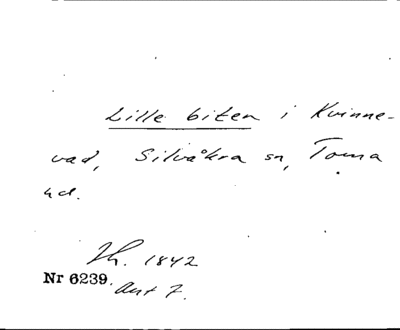 Lille biten i Kvinne-
vad, Silvåkra sn, Torna
hd.
Th. 1842
Nr 6239.
Ant 7.